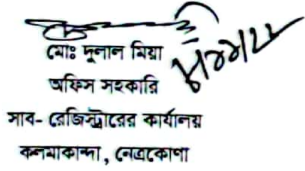 মোঃ দুলাল মিয়া
অফিস সহকারি
সাব- রেজিস্ট্রারের কার্যালয়
কলমাকান্দা, নেত্রকোণা